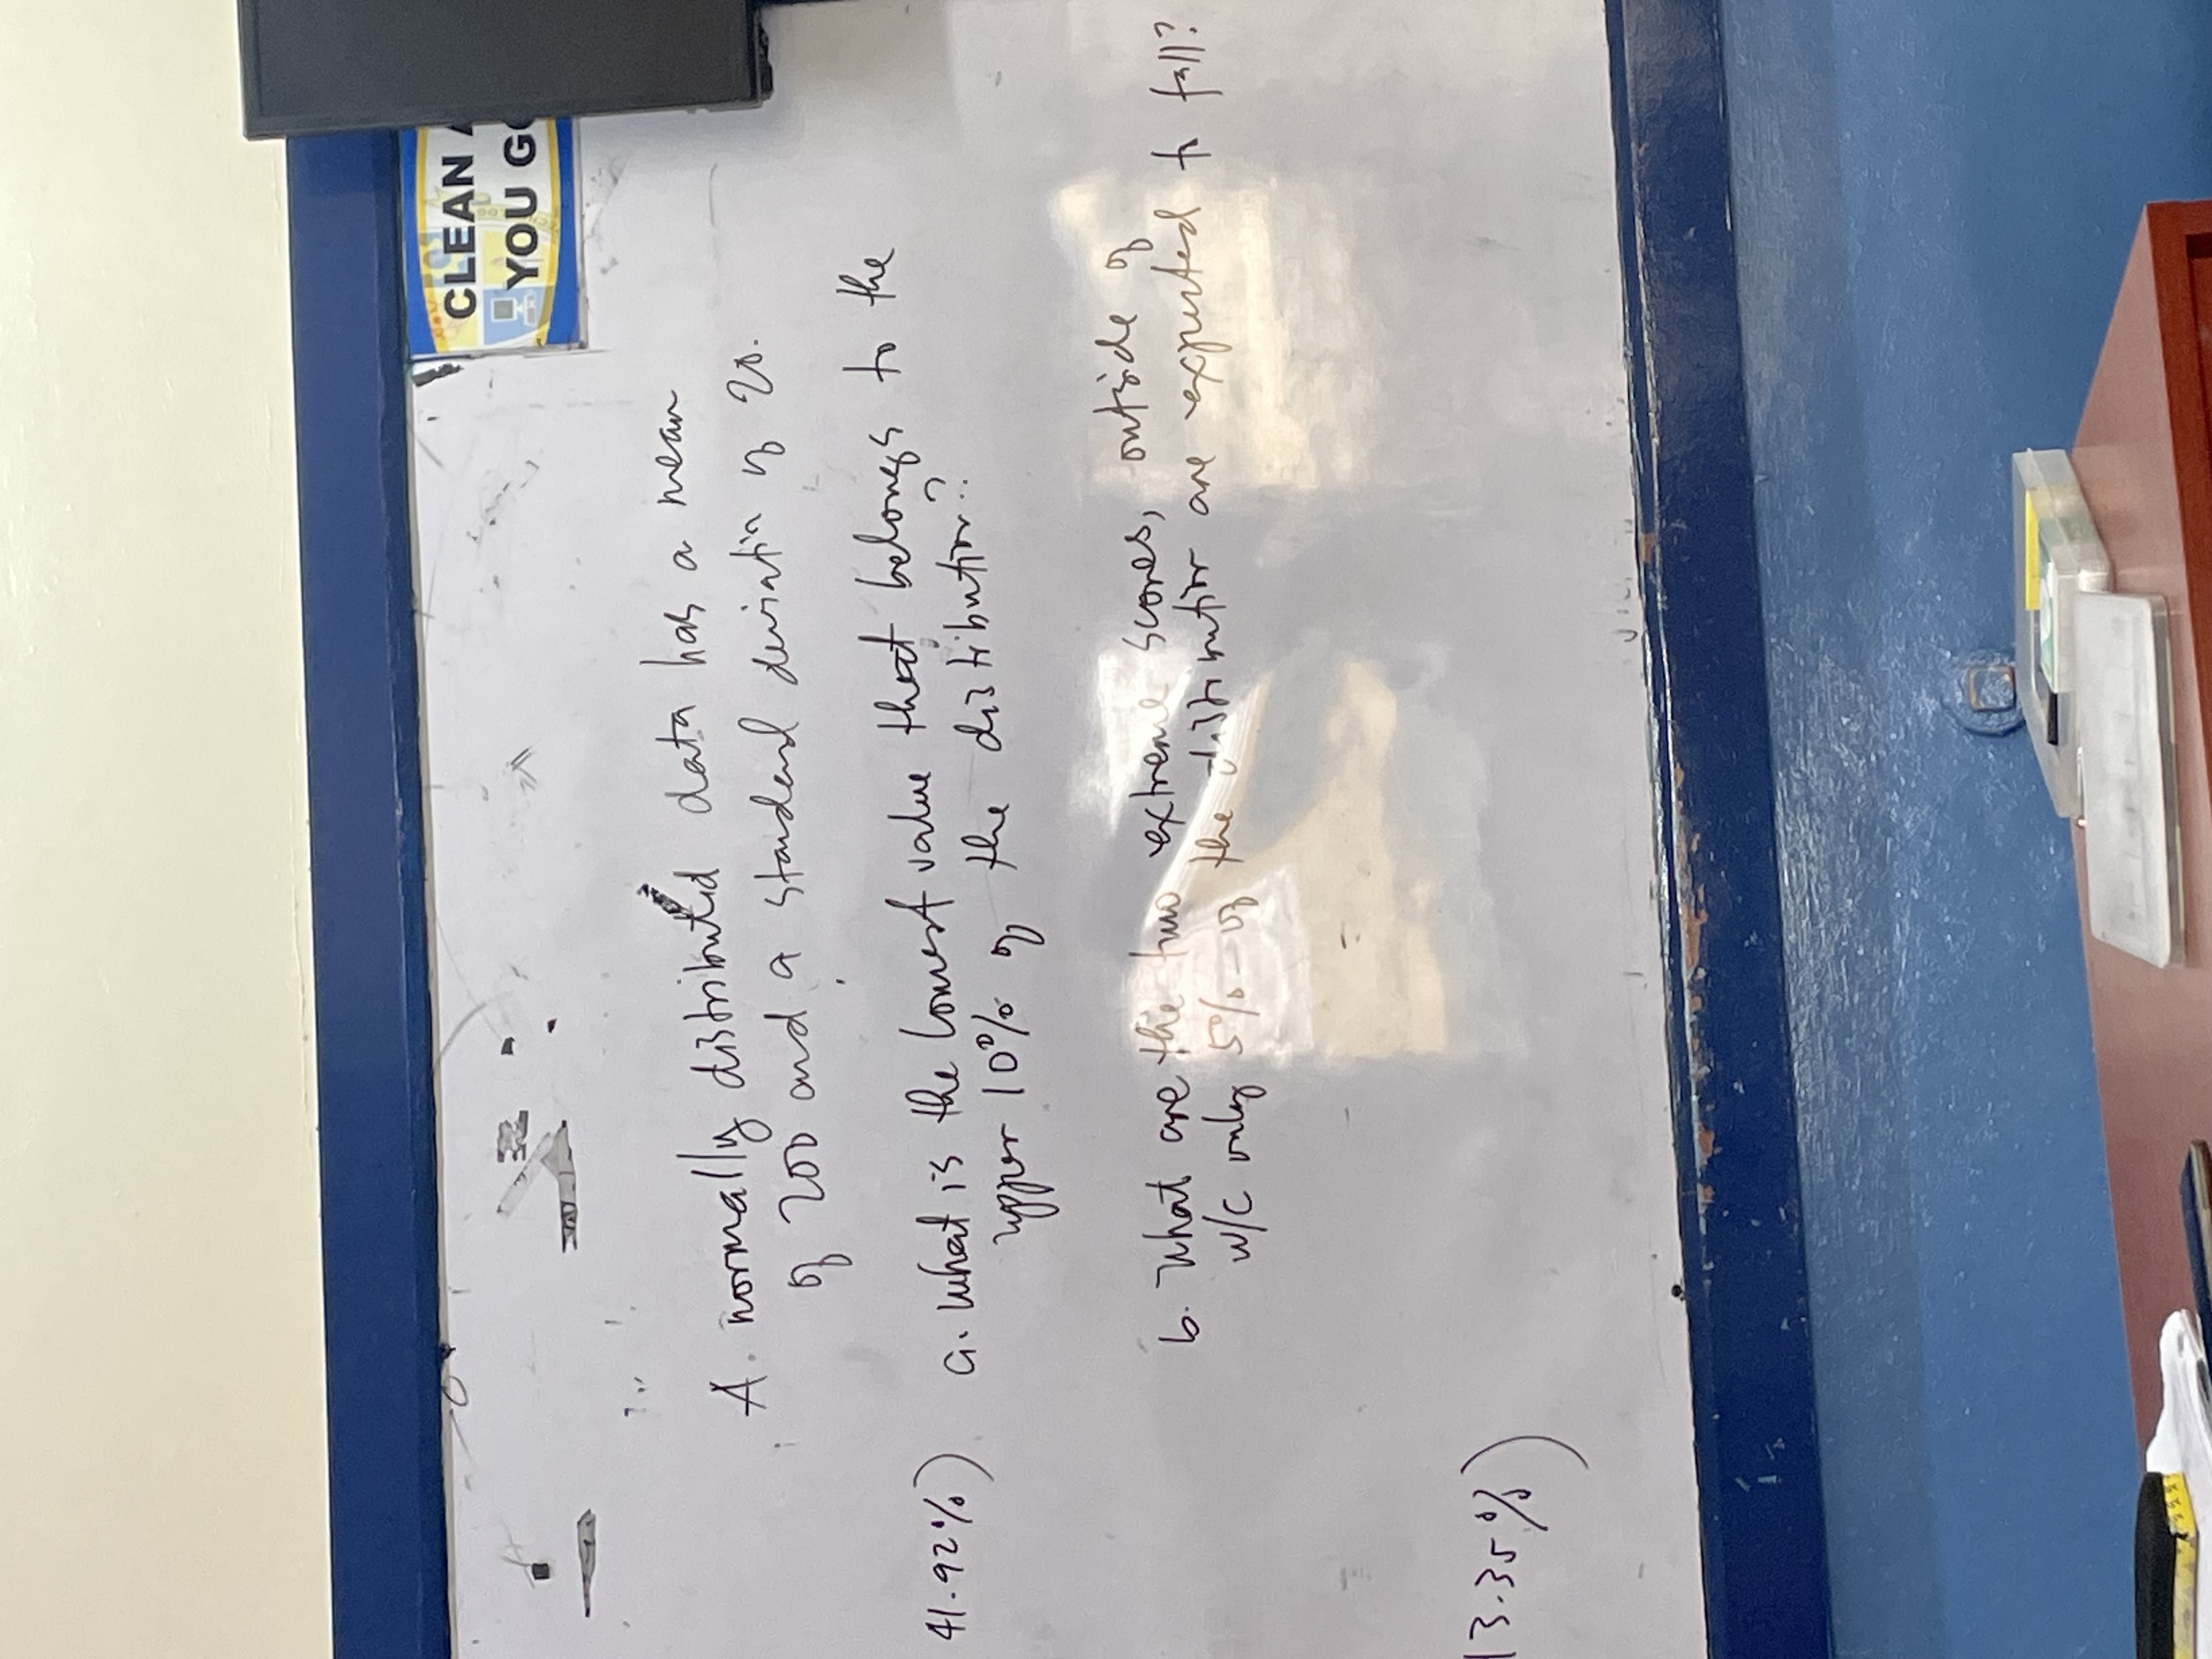 CLEAN
YOU G
A normally distributed data has a mean
of 200 and a standard deviation of 20.
41.92%) a. What is the lowest value that belongs to the
upper 10% of the distribution?
b. What are the two extreme scores, outside of
w/c only 5% of the distribution are expected to fall?
13.35%)